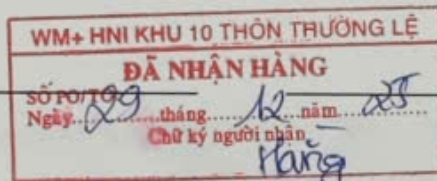 WM+ HNI KHU 10 THÔN THƯỜNG LỆ
ĐÃ NHẬN HÀNG
SỐ PO/T
Ngày 29 tháng 12 năm 25
Chữ ký người nhận
Hằng